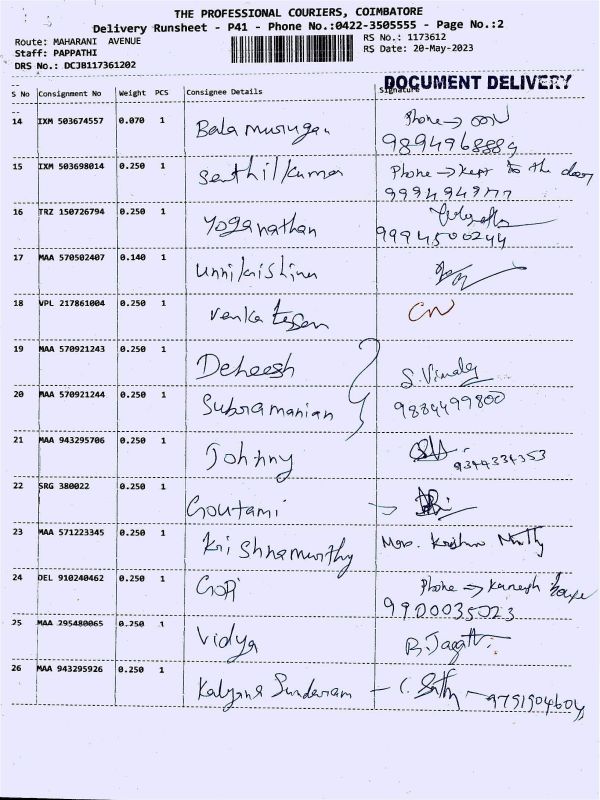 THE PROFESSIONAL COURIERS, COIMBATORE
Delivery Runsheet - P41 - Phone No.:0422-3505555 - Page No.:2
Route: MAHARANI AVENUE
RS No.: 1173612
Staff: PAPPATHI
RS Date: 20-May-2023
DRS No.: DCJB117361202
DOCUMENT DELIVERY
S No Consignment No Weight PCS Consignee Details Signature
14 IXM 503674557 0.070 1 Bala murugan Phone →
9894968889
15 IXM 503698014 0.250 1 Senthil kumar Phone → kept to the door
9994949777
16 TRZ 150726794 0.250 1 Yoganathan
9994500244
17 MAA 570502407 0.140 1 Unni krishnan
18 VPL 217861004 0.250 1 Venka tesan CN
19 MAA 570921243 0.250 1 Deheesh S. Vimala
20 MAA 570921244 0.250 1 Subramanian 9884499800
21 MAA 943295706 0.250 1 Johnny 9344334353
22 SRG 380022 0.250 1 Goutami
23 MAA 571223345 0.250 1 Krishnamurthy Mrs. Krishna Murthy
24 DEL 910240462 0.250 1 Gopi Phone → house
9900035023
25 MAA 295480065 0.250 1 Vidya
26 MAA 943295926 0.250 1 Kalyana Sundaram - 9791904604